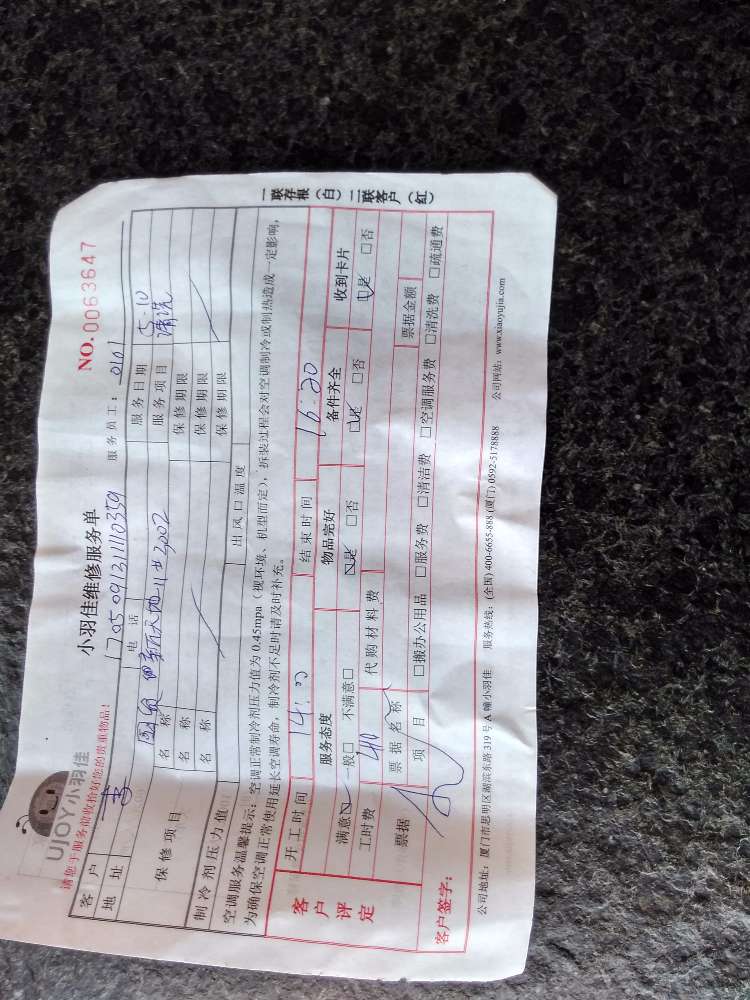 UJOY小羽佳
请您于服务前收拾好您的贵重物品!
小羽佳维修服务单
NO. 0063647
1705091311110359
服务员工: 0101
客户 李 电话 服务日期 5-10
地址 服务项目 清洗
保修项目 名称 保修期限
名称 保修期限
名称 保修期限
制冷剂压力值 出风口温度
空调服务温馨提示: 空调正常制冷剂压力值为 0.45mpa (视环境、机型而定), 拆装过程会对空调制冷或制热造成一定影响,
为确保空调正常使用延长空调寿命, 制冷剂不足时请及时补充。
客户评定
开工时间 14:00 结束时间 16:20
服务态度 物品完好 备件齐全 收到卡片
满意☑ 一般□ 不满意□ ☑是 □否 ☑是 □否 ☑是 □否
工时费 40 代购材料费
票据 票据名称 票据金额
项目 □搬办公用品 □服务费 □清洁费 □空调服务费 □清洗费 □疏通费
客户签字:
公司地址: 厦门市思明区湖滨东路 319 号 A 幢小羽佳 服务热线: (全国) 400-6655-888 (厦门) 0592-5178888 公司网站: www.xiaoyujia.com
一联存根(白) 二联客户(红)